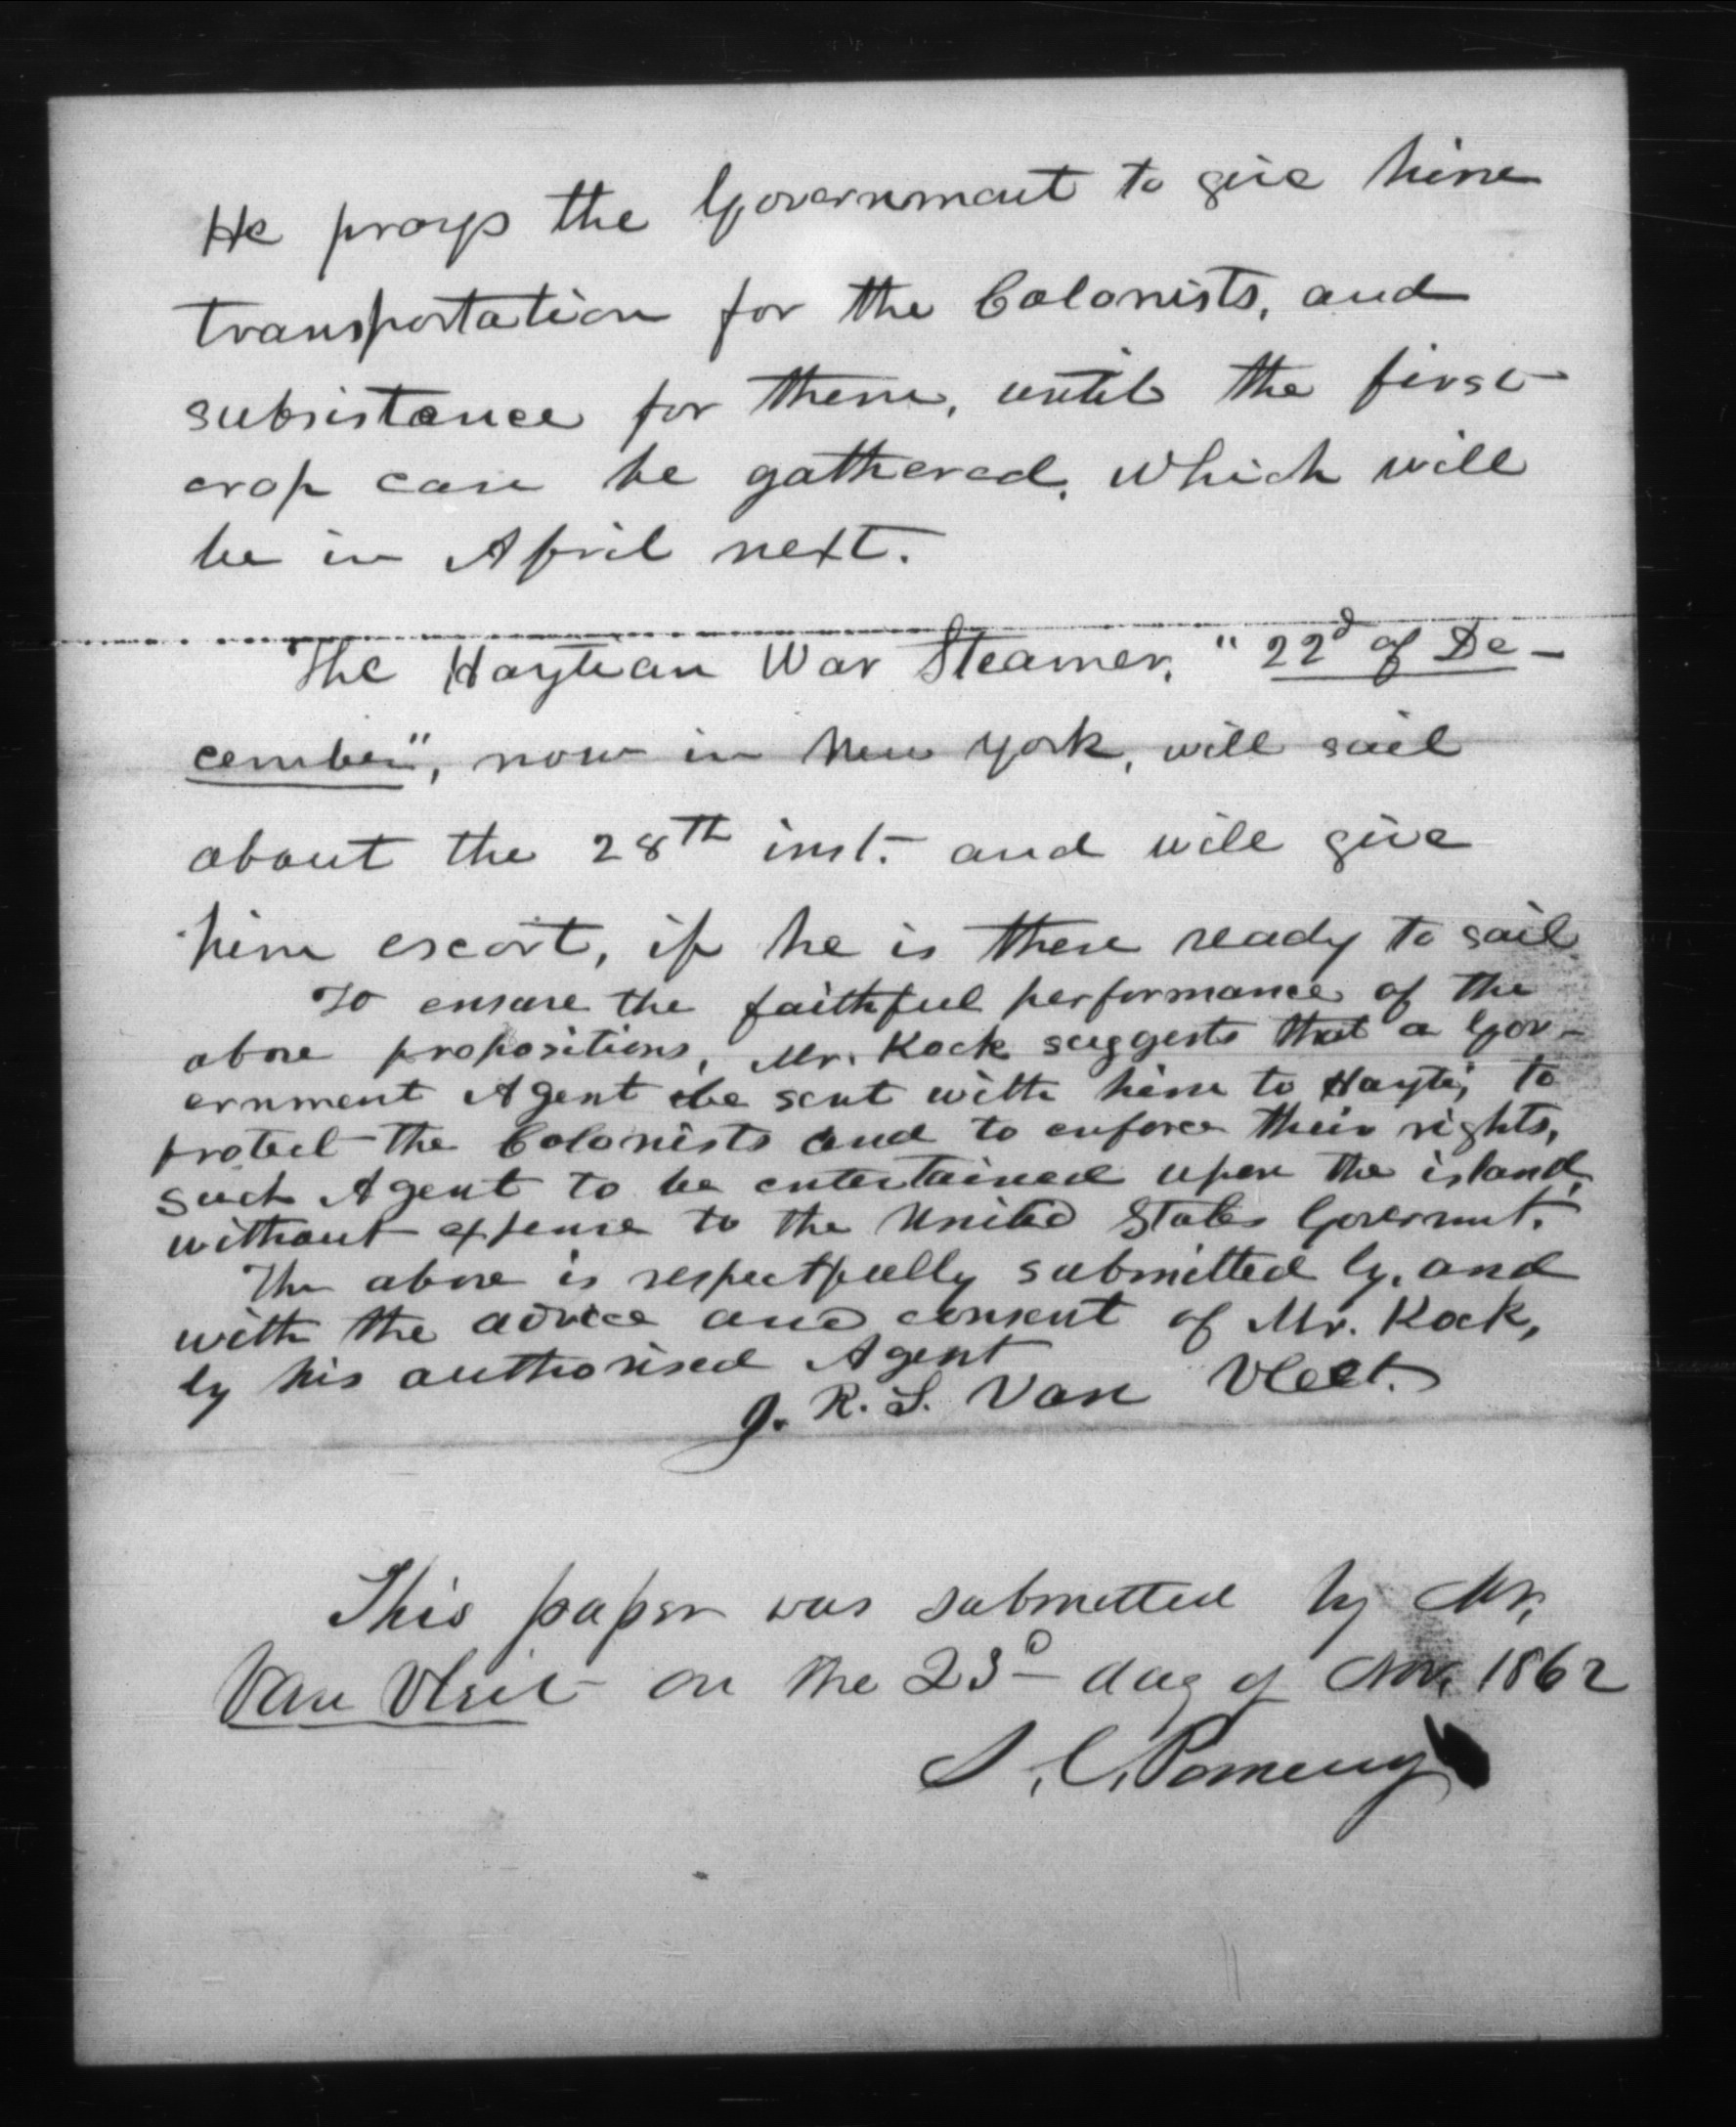 He prays the Government to give him
transportation for the Colonists, and
subsistance for them, until the first
crop can be gathered, which will
be in April next.
The Haytian War Steamer, "22d of De-
cember", now in New York, will sail
about the 28th inst. and will give
him escort, if he is then ready to sail
To ensure the faithful performance of the
above propositions, Mr. Kock suggests that a Gov-
ernment Agent be sent with him to Hayti, to
protect the Colonists and to enforce their rights,
such Agent to be entertained upon the island,
without expense to the United States Governmt.
The above is respectfully submitted by, and
with the advice and consent of Mr. Kock,
by his authorised Agent
J. R. S. Van Vleet.
This paper was submitted by Mr.
Van Vleit on the 23d day of Nov. 1862
S. C. Pomeroy